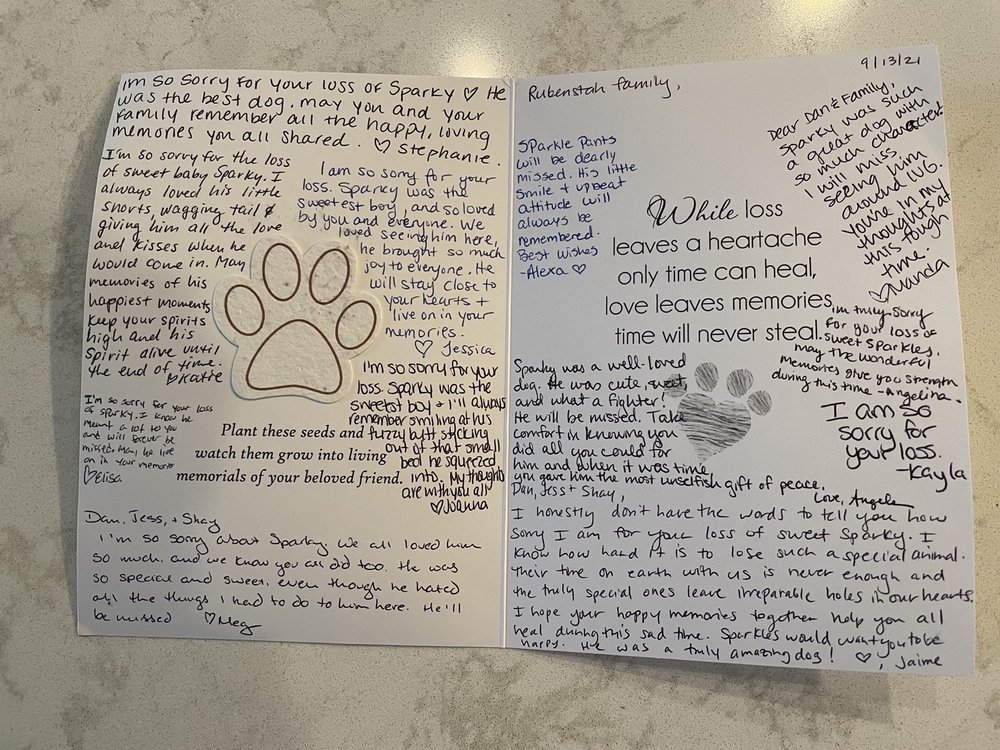 I'm so sorry for your loss of Sparky ♡ He
was the best dog. may you and your
family remember all the happy, loving
memories you all shared. ♡ Stephanie.
I'm so sorry for the loss
of sweet baby Sparky. I
always loved his little
snorts, wagging tail &
giving him all the love
and kisses when he
would come in. May
memories of his
happiest moments
keep your spirits
high and his
spirit alive until
the end of time.
♡Katie
I am so sorry for your
loss. Sparky was the
sweetest boy, and so loved
by you and everyone. We
loved seeing him here,
he brought so much
joy to everyone. He
will stay close to
your hearts +
live on in your
memories.
♡ Jessica
I'm so sorry for your
loss. Sparky was the
sweetst boy & I'll always
remember smiling at his
fuzzy butt sticking
out of that small
bed he squeezed
into. My thoughts
are with you all
♡Joanna
I'm so sorry for your loss
of Sparky. I know he
meant a lot to you
and will forever be
missed. May he live
on in your memories
♡Elisa
Plant these seeds and
watch them grow into living
memorials of your beloved friend.
Dan, Jess, + Shay
I'm so sorry about Sparky. We all loved him
so much and we know you all did too. He was
so special and sweet, even though he hated
all the things I had to do to him here. He'll
be missed ♡Meg
9/13/21
Rubenstah family,
Sparkle Pants
will be dearly
missed. His little
smile + upbeat
attitude will
always be
remembered.
Best wishes
-Alexa ♡
Dear Dan & Family,
Sparky was such
a great dog with
so much character!
I will miss
seeing him
around IVG.
You're in my
thoughts at
this tough
time.
♡Wanda
While loss
leaves a heartache
only time can heal,
love leaves memories
time will never steal.
I'm truly sorry
for your loss of
sweet sparkles.
may the wonderful
memories give you strength
during this time -Angelina.
Sparky was a well-loved
dog. He was cute, sweet,
and what a fighter!
He will be missed. Take
comfort in knowing you
did all you could for
him and when it was time
you gave him the most unselfish gift of peace.
Love, Angela
I am so
sorry for
your loss.
-Kayla
Dan, Jess + Shay,
I honestly don't have the words to tell you how
sorry I am for your loss of sweet Sparky. I
know how hard it is to lose such a special animal.
Their time on earth with us is never enough and
the truly special ones leave irreparable holes in our hearts.
I hope your happy memories together help you all
heal during this sad time. Sparkles would want you to be
happy. He was a truly amazing dog! ♡, Jaime